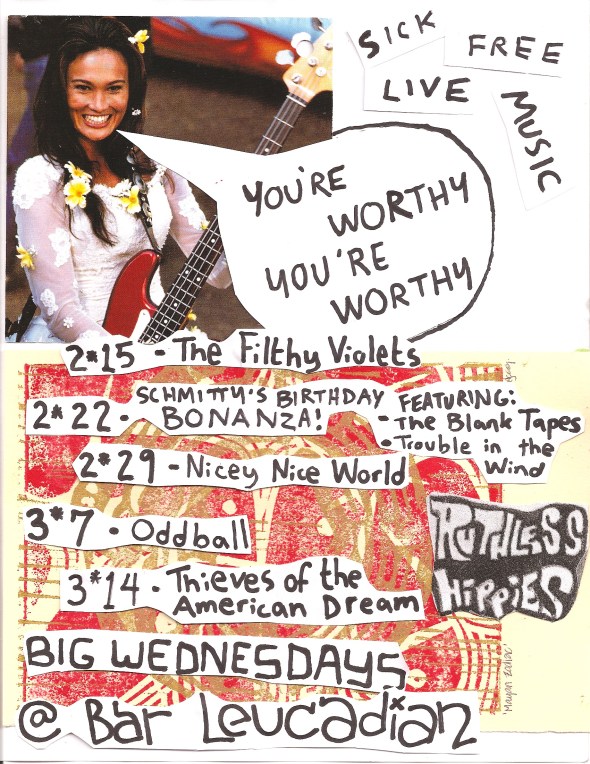 SICK
FREE
LIVE
MUSIC
YOU'RE
WORTHY
YOU'RE
WORTHY
2*15 - The Filthy Violets
2*22 - SCHMITTY'S BIRTHDAY
BONANZA!
FEATURING:
- The Blank Tapes
• Trouble in the
Wind
2*29 - Nicey Nice World
3*7 - Oddball
3*14 - Thieves of the
American Dream
RUTHLESS
HIPPIES
BIG WEDNESDAYS
@ Bar Leucadian
'Mayan Zodiac'